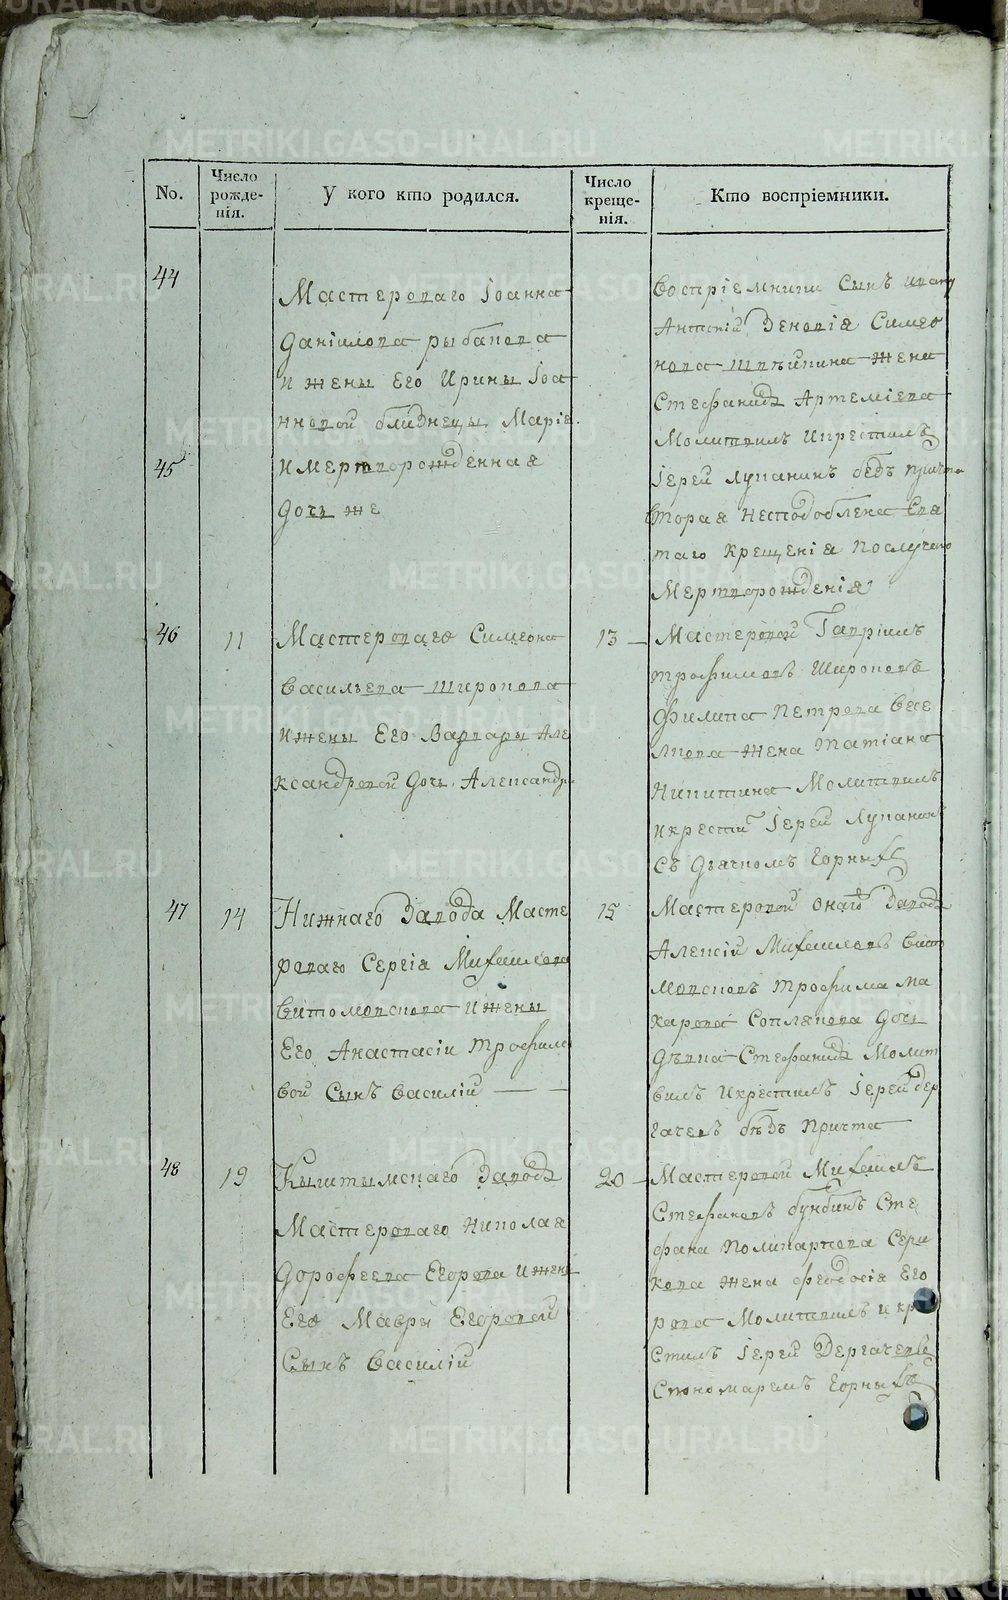 No.
Число рожде-нія.
У кого кто родился.
Число креще-нія.
Кто воспріемники.
44
Мастероваго Іоанна
Даніилова рыбакова
и жены Его Ирины Іоа
нновой близнецы Марія
45
и мерътворожденная
дочь же
Воспріемники Сынъ
Симео
нова жена
Стефанида Артеміева
Молитвилъ и крестилъ
Іерей Лупанинъ безъ причта
вторая несподоблена Свя
таго Крещенія по случаю
Мертворожденія
46
11
Мастероваго Симеона
Васильева Широкова
и жены Его Варвары Але
ксандровой дочь Александра
13
Мастеровой Гавріилъ
трофимовъ Широковъ
Филипа Петрова Весе
лкова жена татіана
Никитина Молитвилъ
и крести Іерей Лупанинъ
съ дьячкомъ Горныхъ
47
14
Нижнаго Завода Масте
роваго Сергія Михаилова
Витомскова и жены
Его Анастасіи трофимо
вой Сынъ Василій
15
Мастеровой онагѡ Завода
Алексій Михаиловъ Вито
мсковъ трофима Ма
карова Соплякова дочь
дѣвка Стефанида Молит
вилъ и крестилъ Іерей дер
гачевъ безъ Причта
48
19
Кыштымскаго Завода
Мастероваго Николая
Дорофеева Егорова и жены
Его Мавры Егоровой
Сынъ Василій
20
Мастеровой Михаилъ
Стефановъ бунбинъ Сте
фана Поликарпова Сери
кова жена феодосія Его
рова Молитвилъ и кре
стилъ Іерей Дергачевъ
Спономаремъ Горныхъ
METRIKI.GASO-URAL.RU